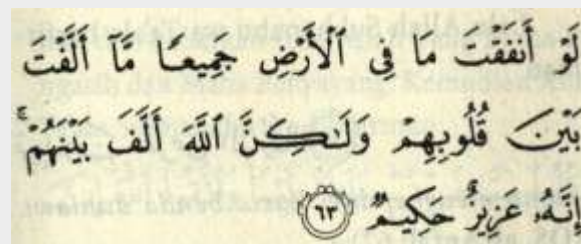 لَوْ أَنفَقْتَ مَا فِى ٱلْأَرْضِ جَمِيعًا مَّآ أَلَّفْتَ
بَيْنَ قُلُوبِهِمْ وَلَـٰكِنَّ ٱللَّهَ أَلَّفَ بَيْنَهُمْ ۚ
إِنَّهُۥ عَزِيزٌ حَكِيمٌ ٦٣